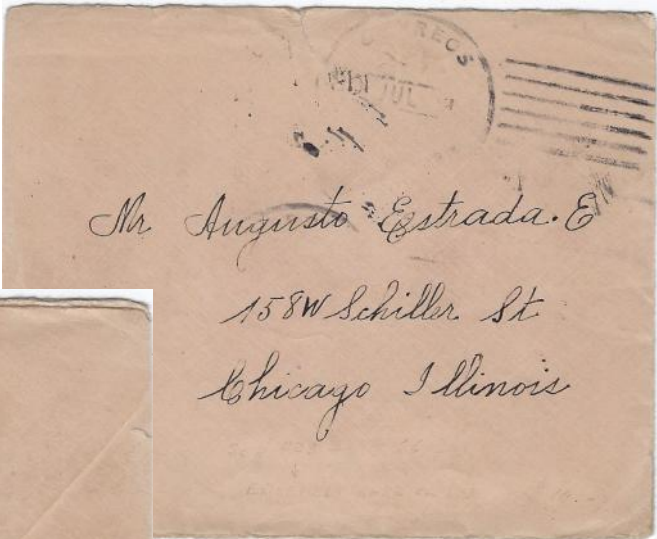 CORREOS
JUL
Mr Augusto Estrada. E
158 W Schiller St
Chicago Illinois